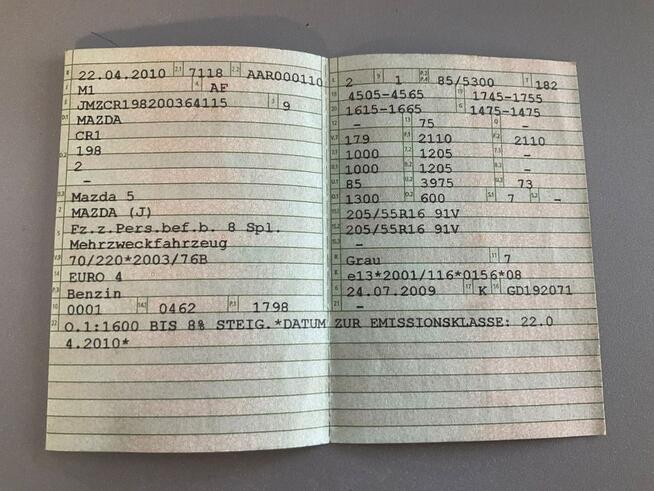 22.04.2010 7118 AAR000110
M1 AF
JMZCR198200364115 9
MAZDA
CR1
198
2
-
Mazda 5
MAZDA (J)
Fz.z.Pers.bef.b. 8 Spl.
Mehrzweckfahrzeug
70/220*2003/76B
EURO 4
Benzin
0001 0462 P.1 1798
2 9 1 85/5300 T 182
4505-4565 1745-1755
1615-1665 1475-1475
- 13 75 Q -
179 F.1 2110 F.2 2110
1000 1205 -
1000 1205 -
85 3975 73
1300 600 S.1 7 S.2 -
205/55R16 91V
205/55R16 91V
-
Grau 11 7
e13*2001/116*0156*08
24.07.2009 17 K 16 GD192071
21 -
22 O.1:1600 BIS 8% STEIG.*DATUM ZUR EMISSIONSKLASSE: 22.0
4.2010*